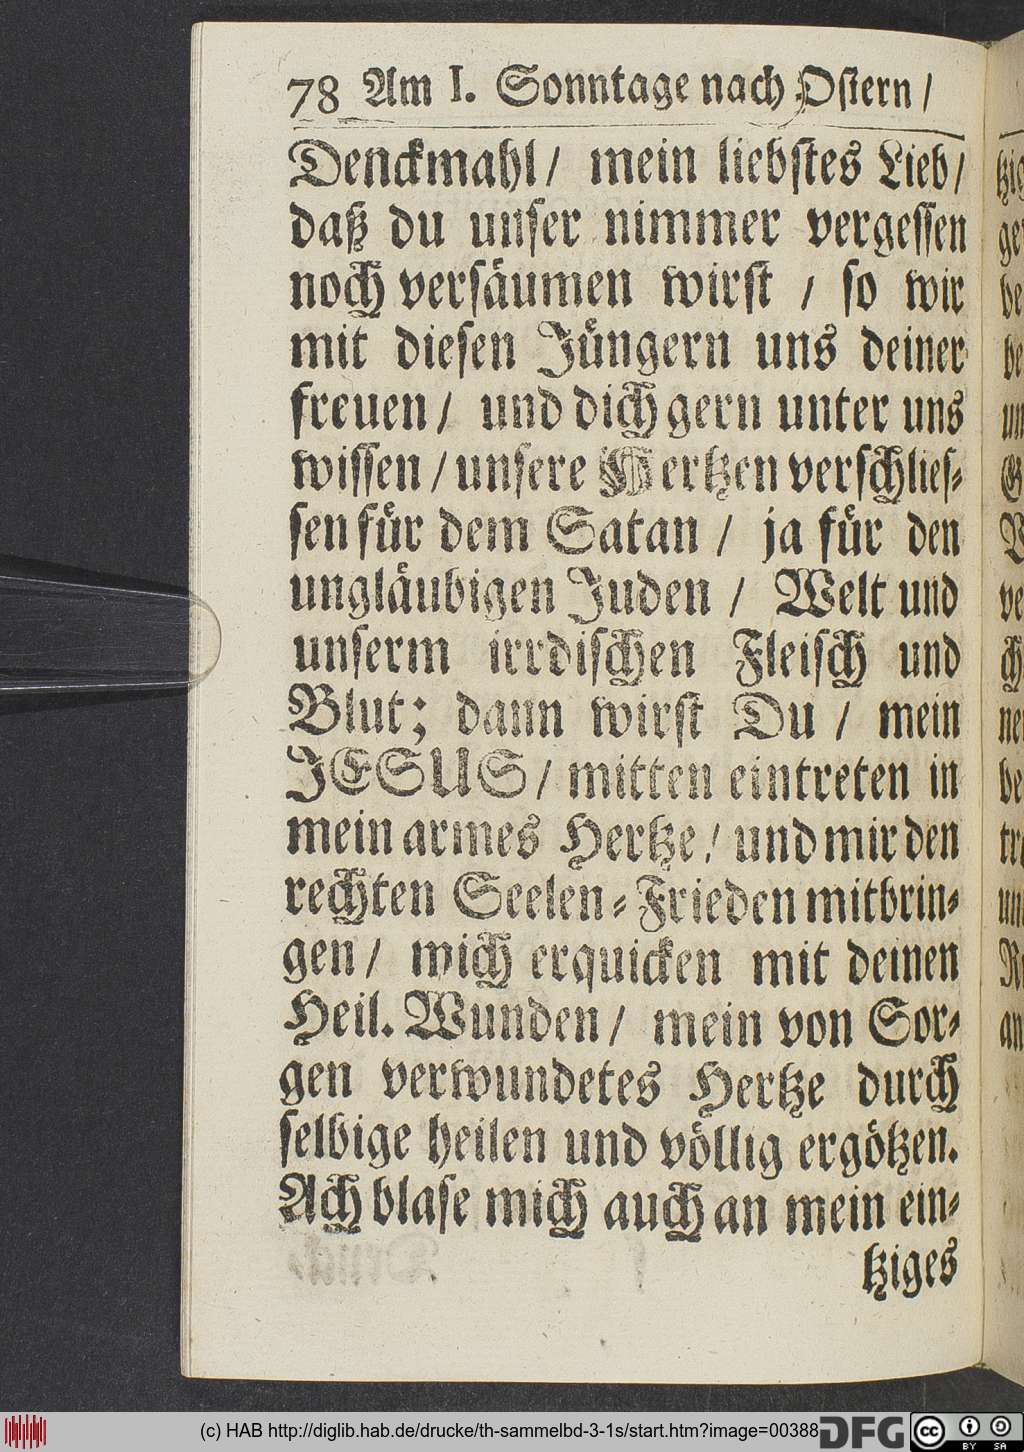 78 Am I. Sonntage nach Ostern /
Denckmahl / mein liebstes Lieb /
daß du unser nimmer vergessen
noch versäumen wirst / so wir
mit diesen Jüngern uns deiner
freuen / und dich gern unter uns
wissen / unsere Hertzen verschlies-
sen für dem Satan / ja für den
ungläubigen Juden / Welt und
unserm irrdischen Fleisch und
Blut; dann wirst Du / mein
JESUS / mitten eintreten in
mein armes Hertze / und mir den
rechten Seelen-Frieden mitbrin-
gen / mich erquicken mit deinen
Heil. Wunden / mein von Sor-
gen verwundetes Hertze durch
selbige heilen und völlig ergötzen.
Ach blase mich auch an mein ein-
tziges
(c) HAB http://diglib.hab.de/drucke/th-sammelbd-3-1s/start.htm?image=00388
DFG
cc BY SA